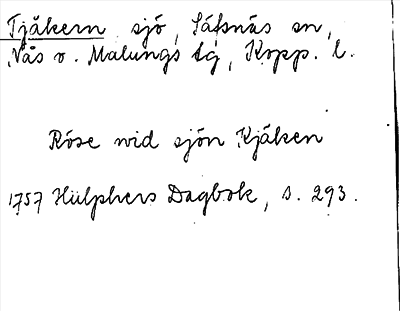 Tjåkern sjö, Säfsnäs sn,
Nås o. Malungs tg, Kopp. l.
Röse wid sjön Kjåken
1757 Hülphers Dagbok, s. 293.